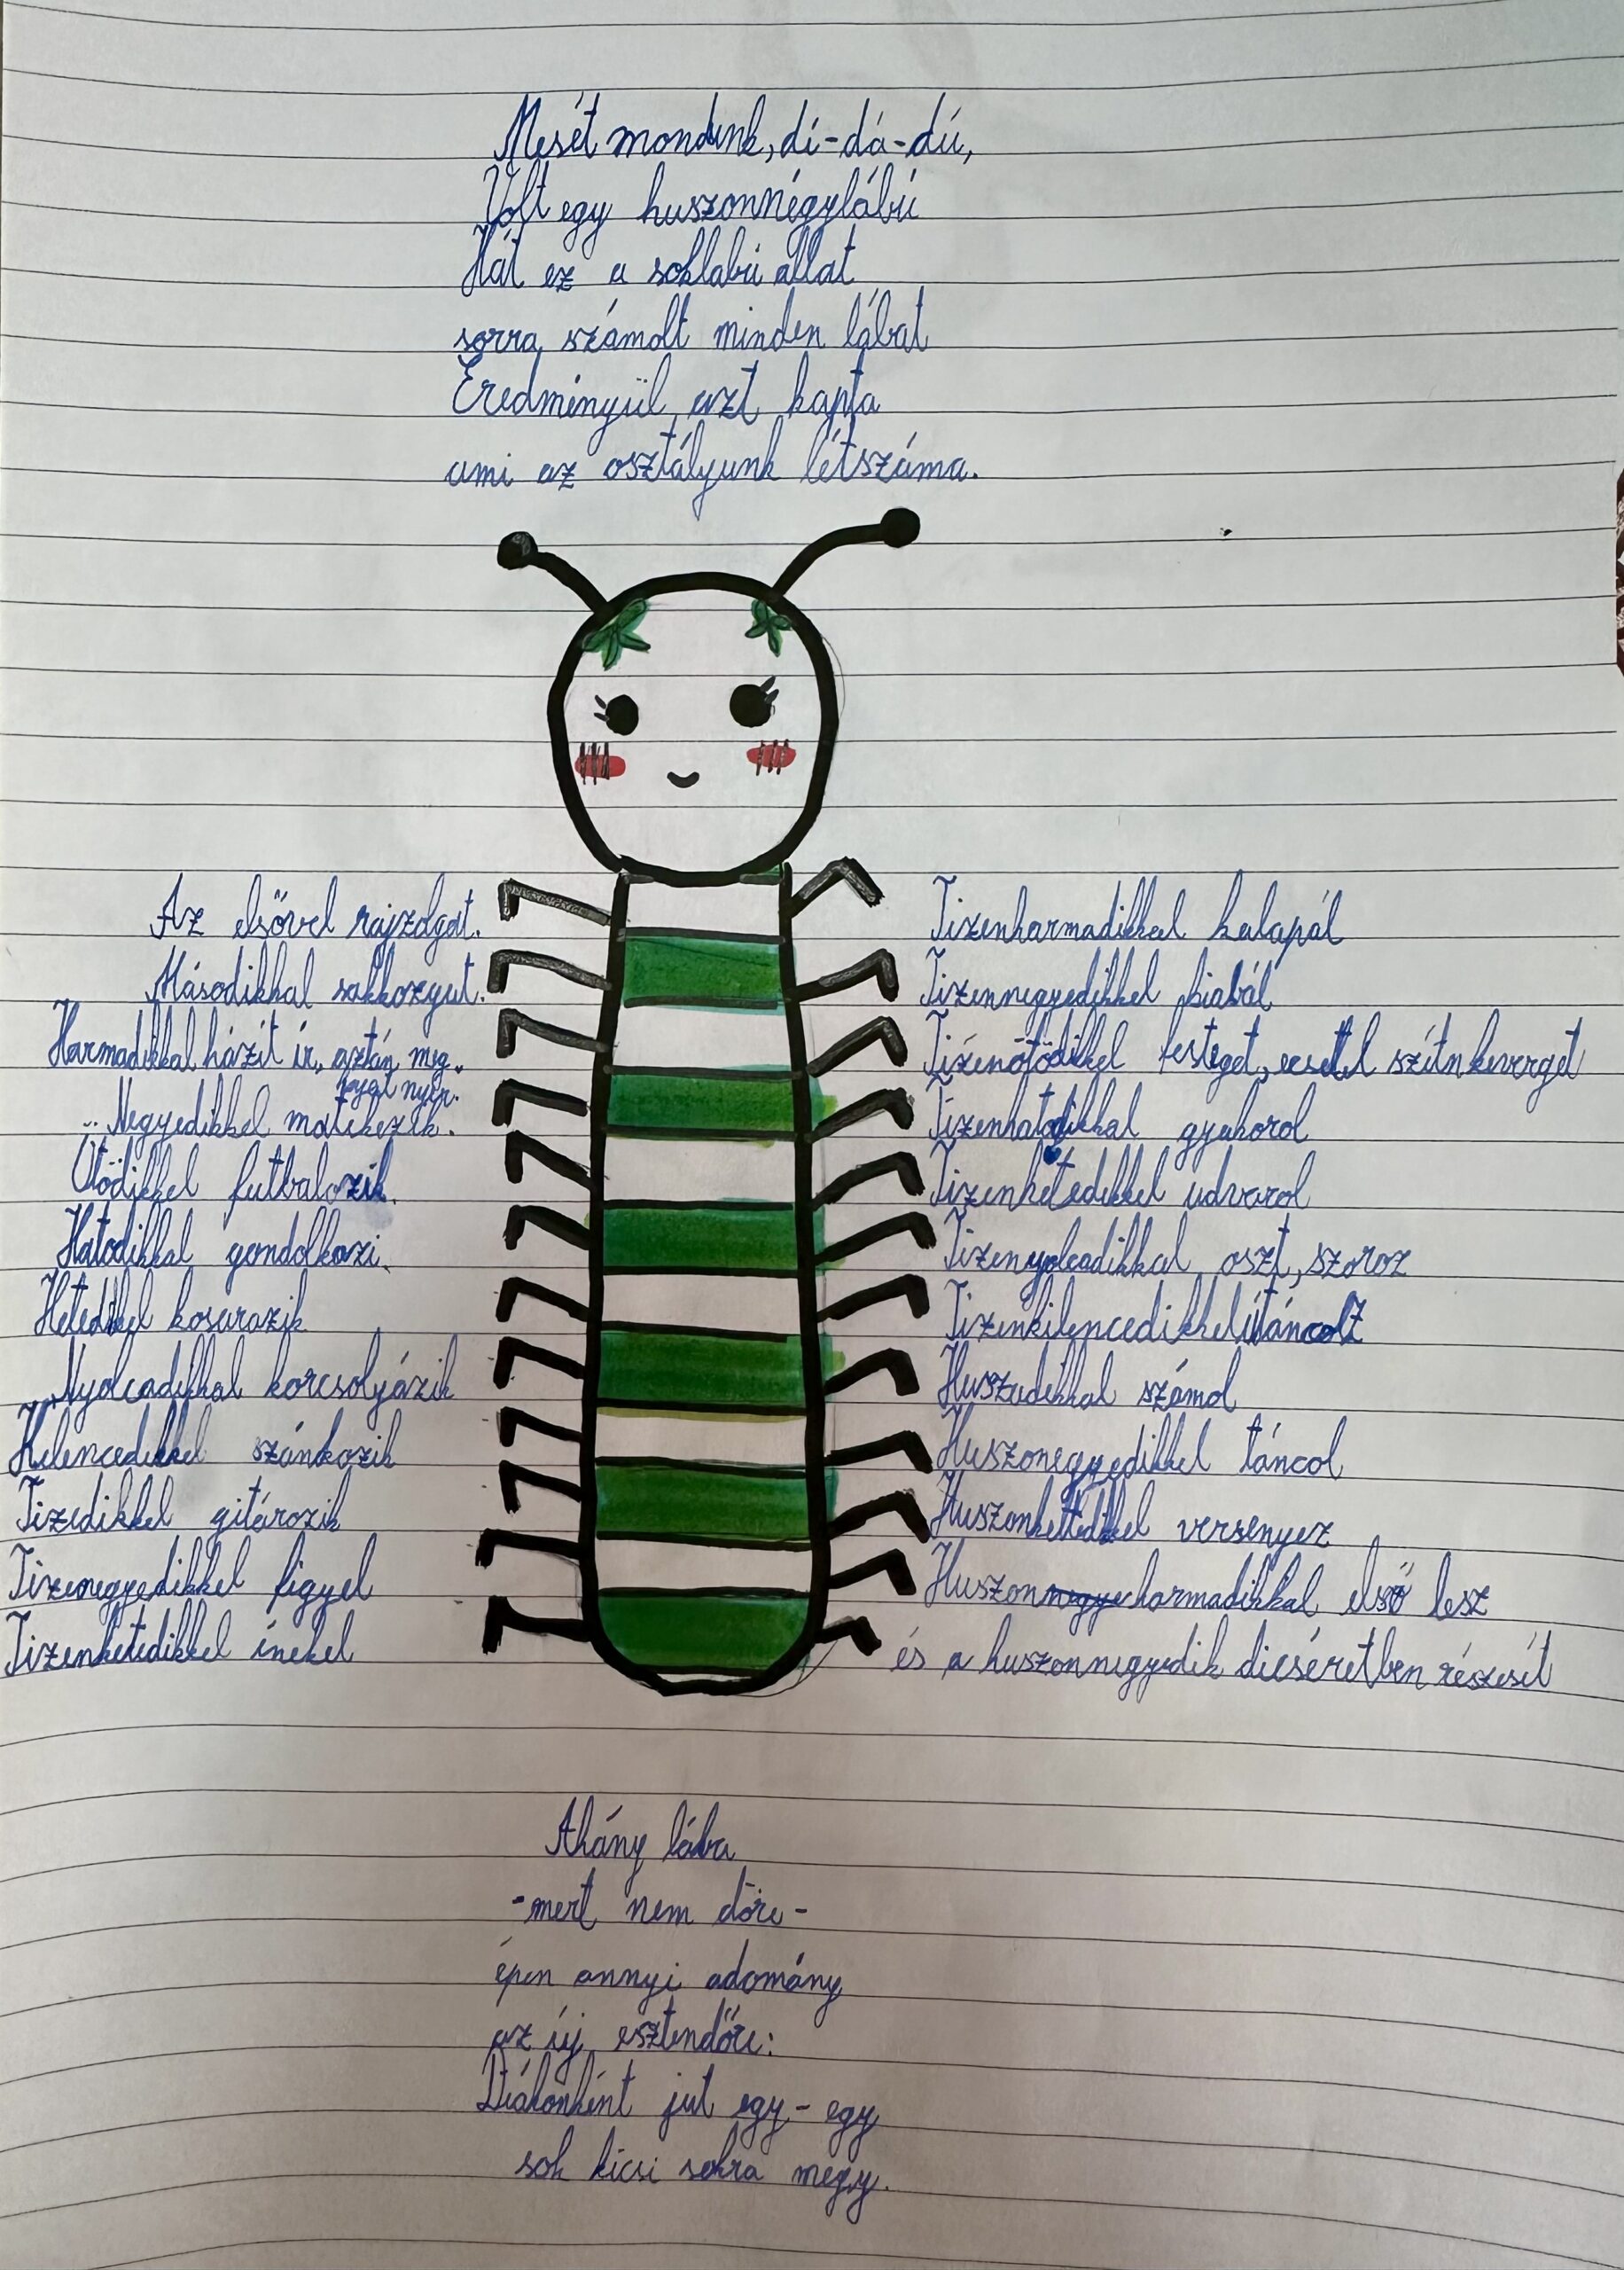 Mesét mondunk, di-dá-dú,
Volt egy huszonnégylábú
Hát ez a soklabú állat
sorra számolt minden lábat
Eredményül azt kapta
ami az osztályunk létszáma.
Az elsővel rajzolgat.
Másodikkal sakkozgat.
Harmadikkal házit ír, aztán meg
nyer.
Negyedikkel matekezik.
Ötödikkel futbalozik.
Hatodikkal gondolkozi.
Hetedikkel kosarazik
Nyolcadikkal korcsolyázik
Kilencedikkel szánkozik
Tizedikkel gitározik
Tizenegyedikkel figyel
Tizenketedikkel énekel
Tizenharmadikkal kalapál
Tizennegyedikkel kiabál
Tizenötödikkel festeget, ecsettel színtn keverget
Tizenhatodikkal gyakorol
Tizenhetedikkel udvarol
Tizenyolcadikkal oszt, szoroz
Tizenkilencedikkel táncolz
Huszadikkal számol
Huszonegyedikkel táncol
Huszonkettedikkel versenyez
Huszonnegyeharmadikkal első lesz
és a huszonnegyedik dicséretben részesít
Ahány lába
-mert nem dőre-
épen annyi adomány
az új esztendőre:
Diákonként jut egy-egy
sok kicsi sokra megy.